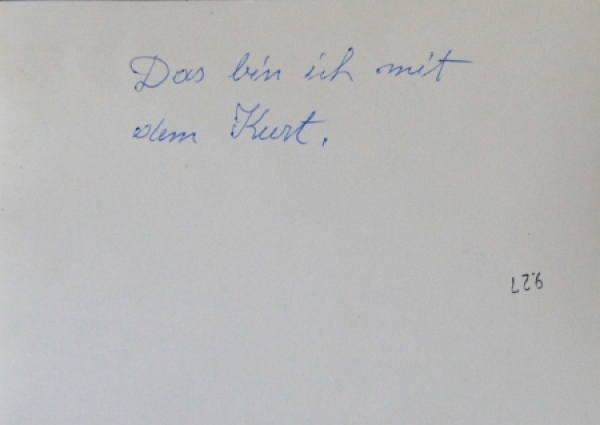 Das bin ich mit
dem Kurt.
6.27